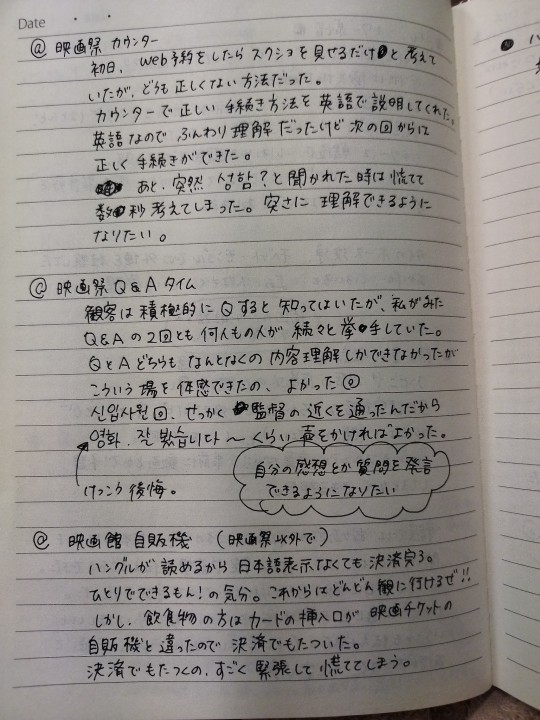 Date ・ ・
@ 映画祭 カウンター
初日、 web予約をしたら スクショを見せるだけ と 考えて
いたが、どうも正しくない方法だった。
カウンターで正しい 手続き方法を 英語で説明してくれた。
英語なので ふんわり理解 だったけど 次の回からは
正しく 手続きができた。
あと、突然 성함? と聞かれた時は 慌てて
数 秒考えてしまった。突さに 理解できるように
なりたい。
@ 映画祭 Q&A タイム
観客は 積極的に Q すると 知ってはいたが、私がみた
Q&A の 2回とも 何人もの人が 続々と 挙 手していた。
QとA どちらも なんとなくの 内容理解 しかできなかったが
こういう 場を 体感できたの、よかった
신입사원 回、せっかく 監督の 近くを 通ったんだから
영화 잘 봤습니다 〜 くらい 声をかければよかった。
けっこう 後悔。
自分の感想とか 質問を 発言
できるようになりたい
@ 映画館 自販機 (映画祭以外で)
ハングルが 読めるから 日本語表示なくても 決済完了。
ひとりでできるもん! の気分。これからは どんどん 観に行けるぜ!!
しかし、飲食物の方は カードの挿入口が 映画チケットの
自販機と 違ったので 決済でもたついた。
決済でもたつくの、すごく 緊張して 慌ててしまう。